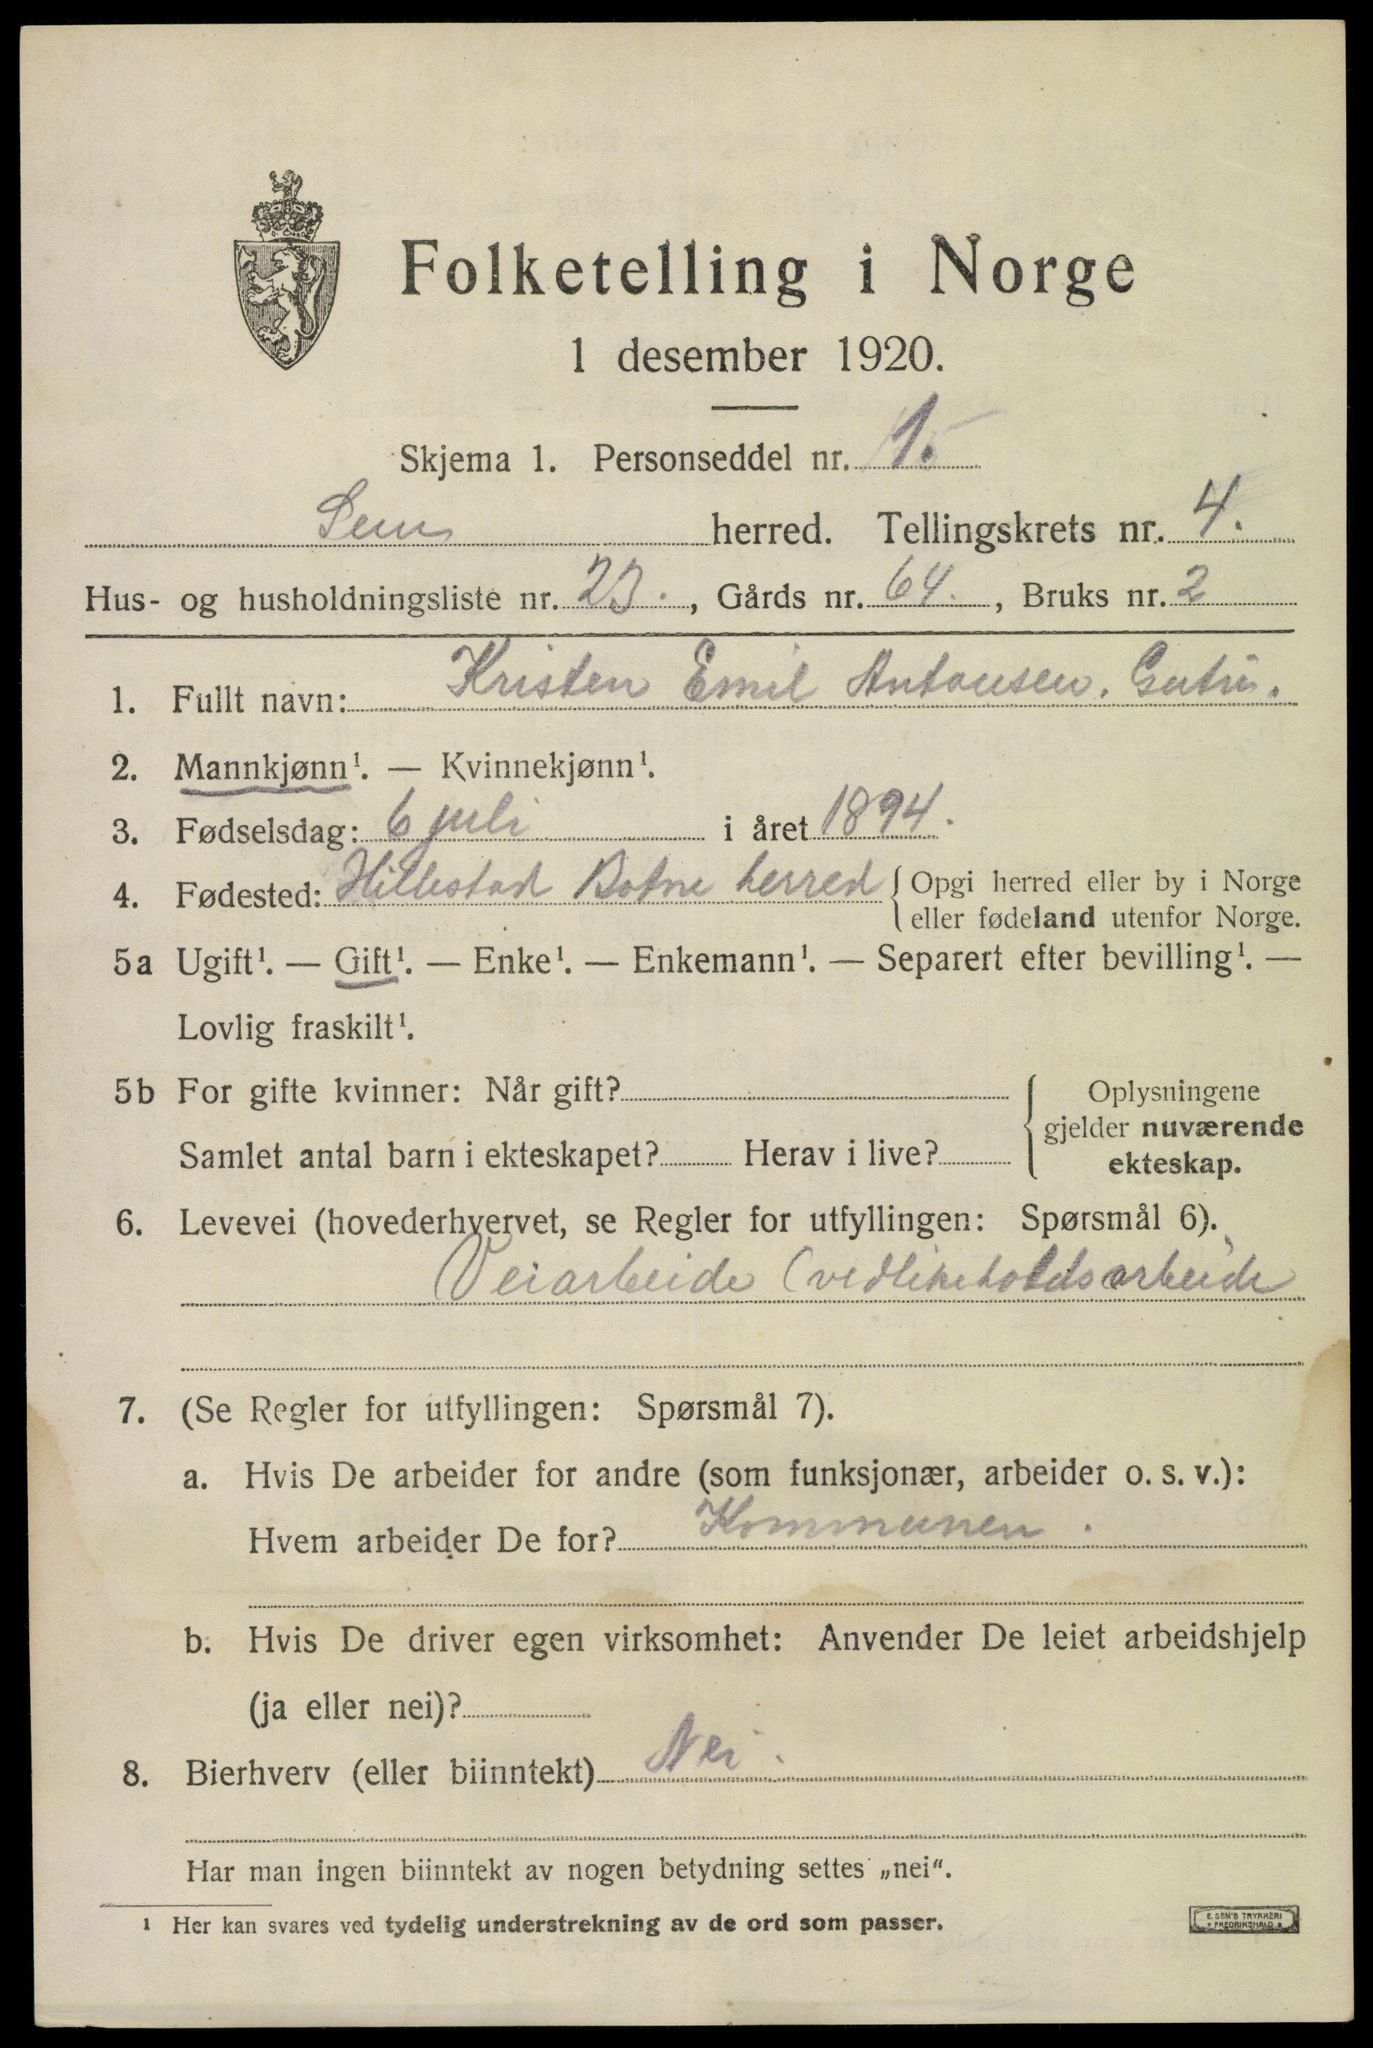 Folketelling i Norge
1 desember 1920.
Skjema 1. Personseddel nr. 1.
Sem herred. Tellingskrets nr. 4.
Hus- og husholdningsliste nr. 23., Gårds nr. 64., Bruks nr. 2
1. Fullt navn: Kristen Emil Antonsen.
2. Mannkjønn¹. — Kvinnekjønn¹.
3. Fødselsdag: 6 juli i året 1894.
4. Fødested: Hillestad Botne herred { Opgi herred eller by i Norge
eller fødeland utenfor Norge.
5a Ugift¹. — Gift¹. — Enke¹. — Enkemann¹. — Separert efter bevilling¹. —
Lovlig fraskilt¹.
5b For gifte kvinner: Når gift? { Oplysningene
gjelder nuværende
Samlet antal barn i ekteskapet? Herav i live? ekteskap.
6. Levevei (hovederhvervet, se Regler for utfyllingen: Spørsmål 6).
Veiarbeide (vedlikeholdsarbeide
7. (Se Regler for utfyllingen: Spørsmål 7).
a. Hvis De arbeider for andre (som funksjonær, arbeider o. s. v.):
Hvem arbeider De for? Kommunen.
b. Hvis De driver egen virksomhet: Anvender De leiet arbeidshjelp
(ja eller nei)?
8. Bierhverv (eller biinntekt) Nei.
Har man ingen biinntekt av nogen betydning settes „nei“.
¹ Her kan svares ved tydelig understrekning av de ord som passer.
E. SEM'S TRYKKERI
FREDRIKSHALD